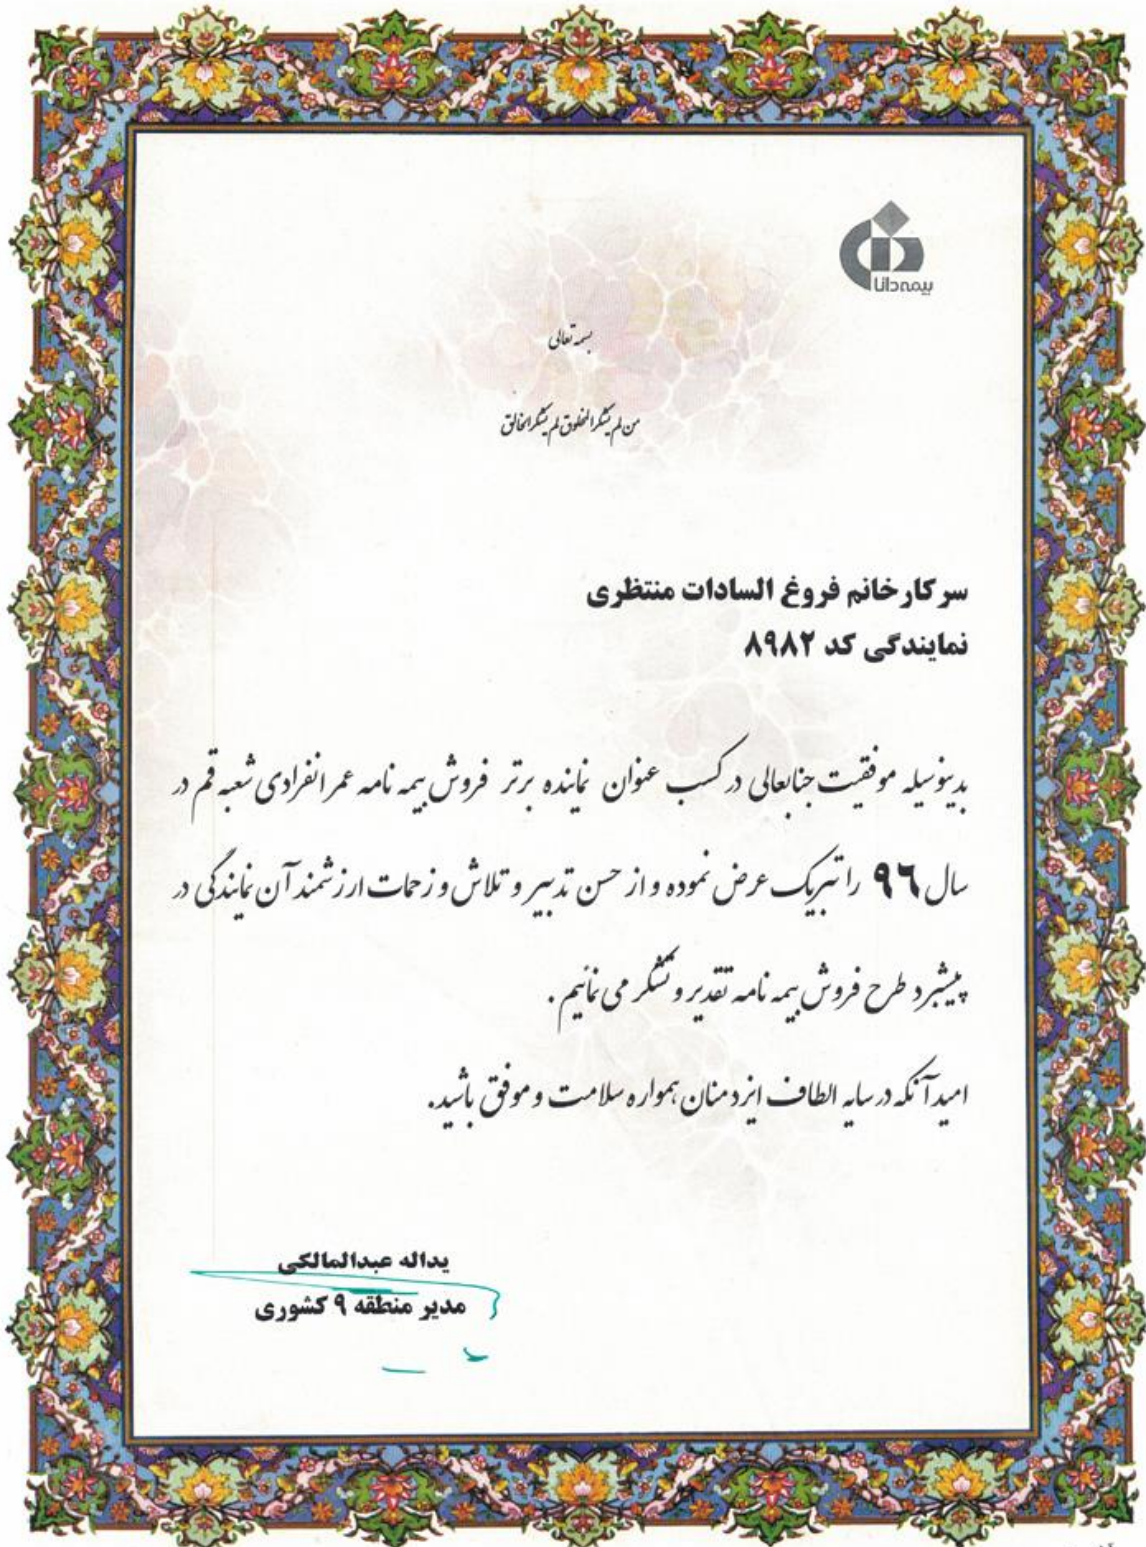 بیمه دانا
بسمه تعالی
من لم یشکر المخلوق لم یشکر الخالق
سرکار خانم فروغ السادات منتظری
نمایندگی کد ۸۹۸۲
بدینوسیله موفقیت جنابعالی در کسب عنوان نماینده برتر فروش بیمه نامه عمر انفرادی شعبه قم در
سال ۹۶ را تبریک عرض نموده و از حسن تدبیر و تلاش و زحمات ارزشمند آن نمایندگی در
پیشبرد طرح فروش بیمه نامه تقدیر و تشکر می نمائیم .
امید آنکه در سایه الطاف ایزد منان همواره سلامت و موفق باشید.
یداله عبدالمالکی
مدیر منطقه ۹ کشوری